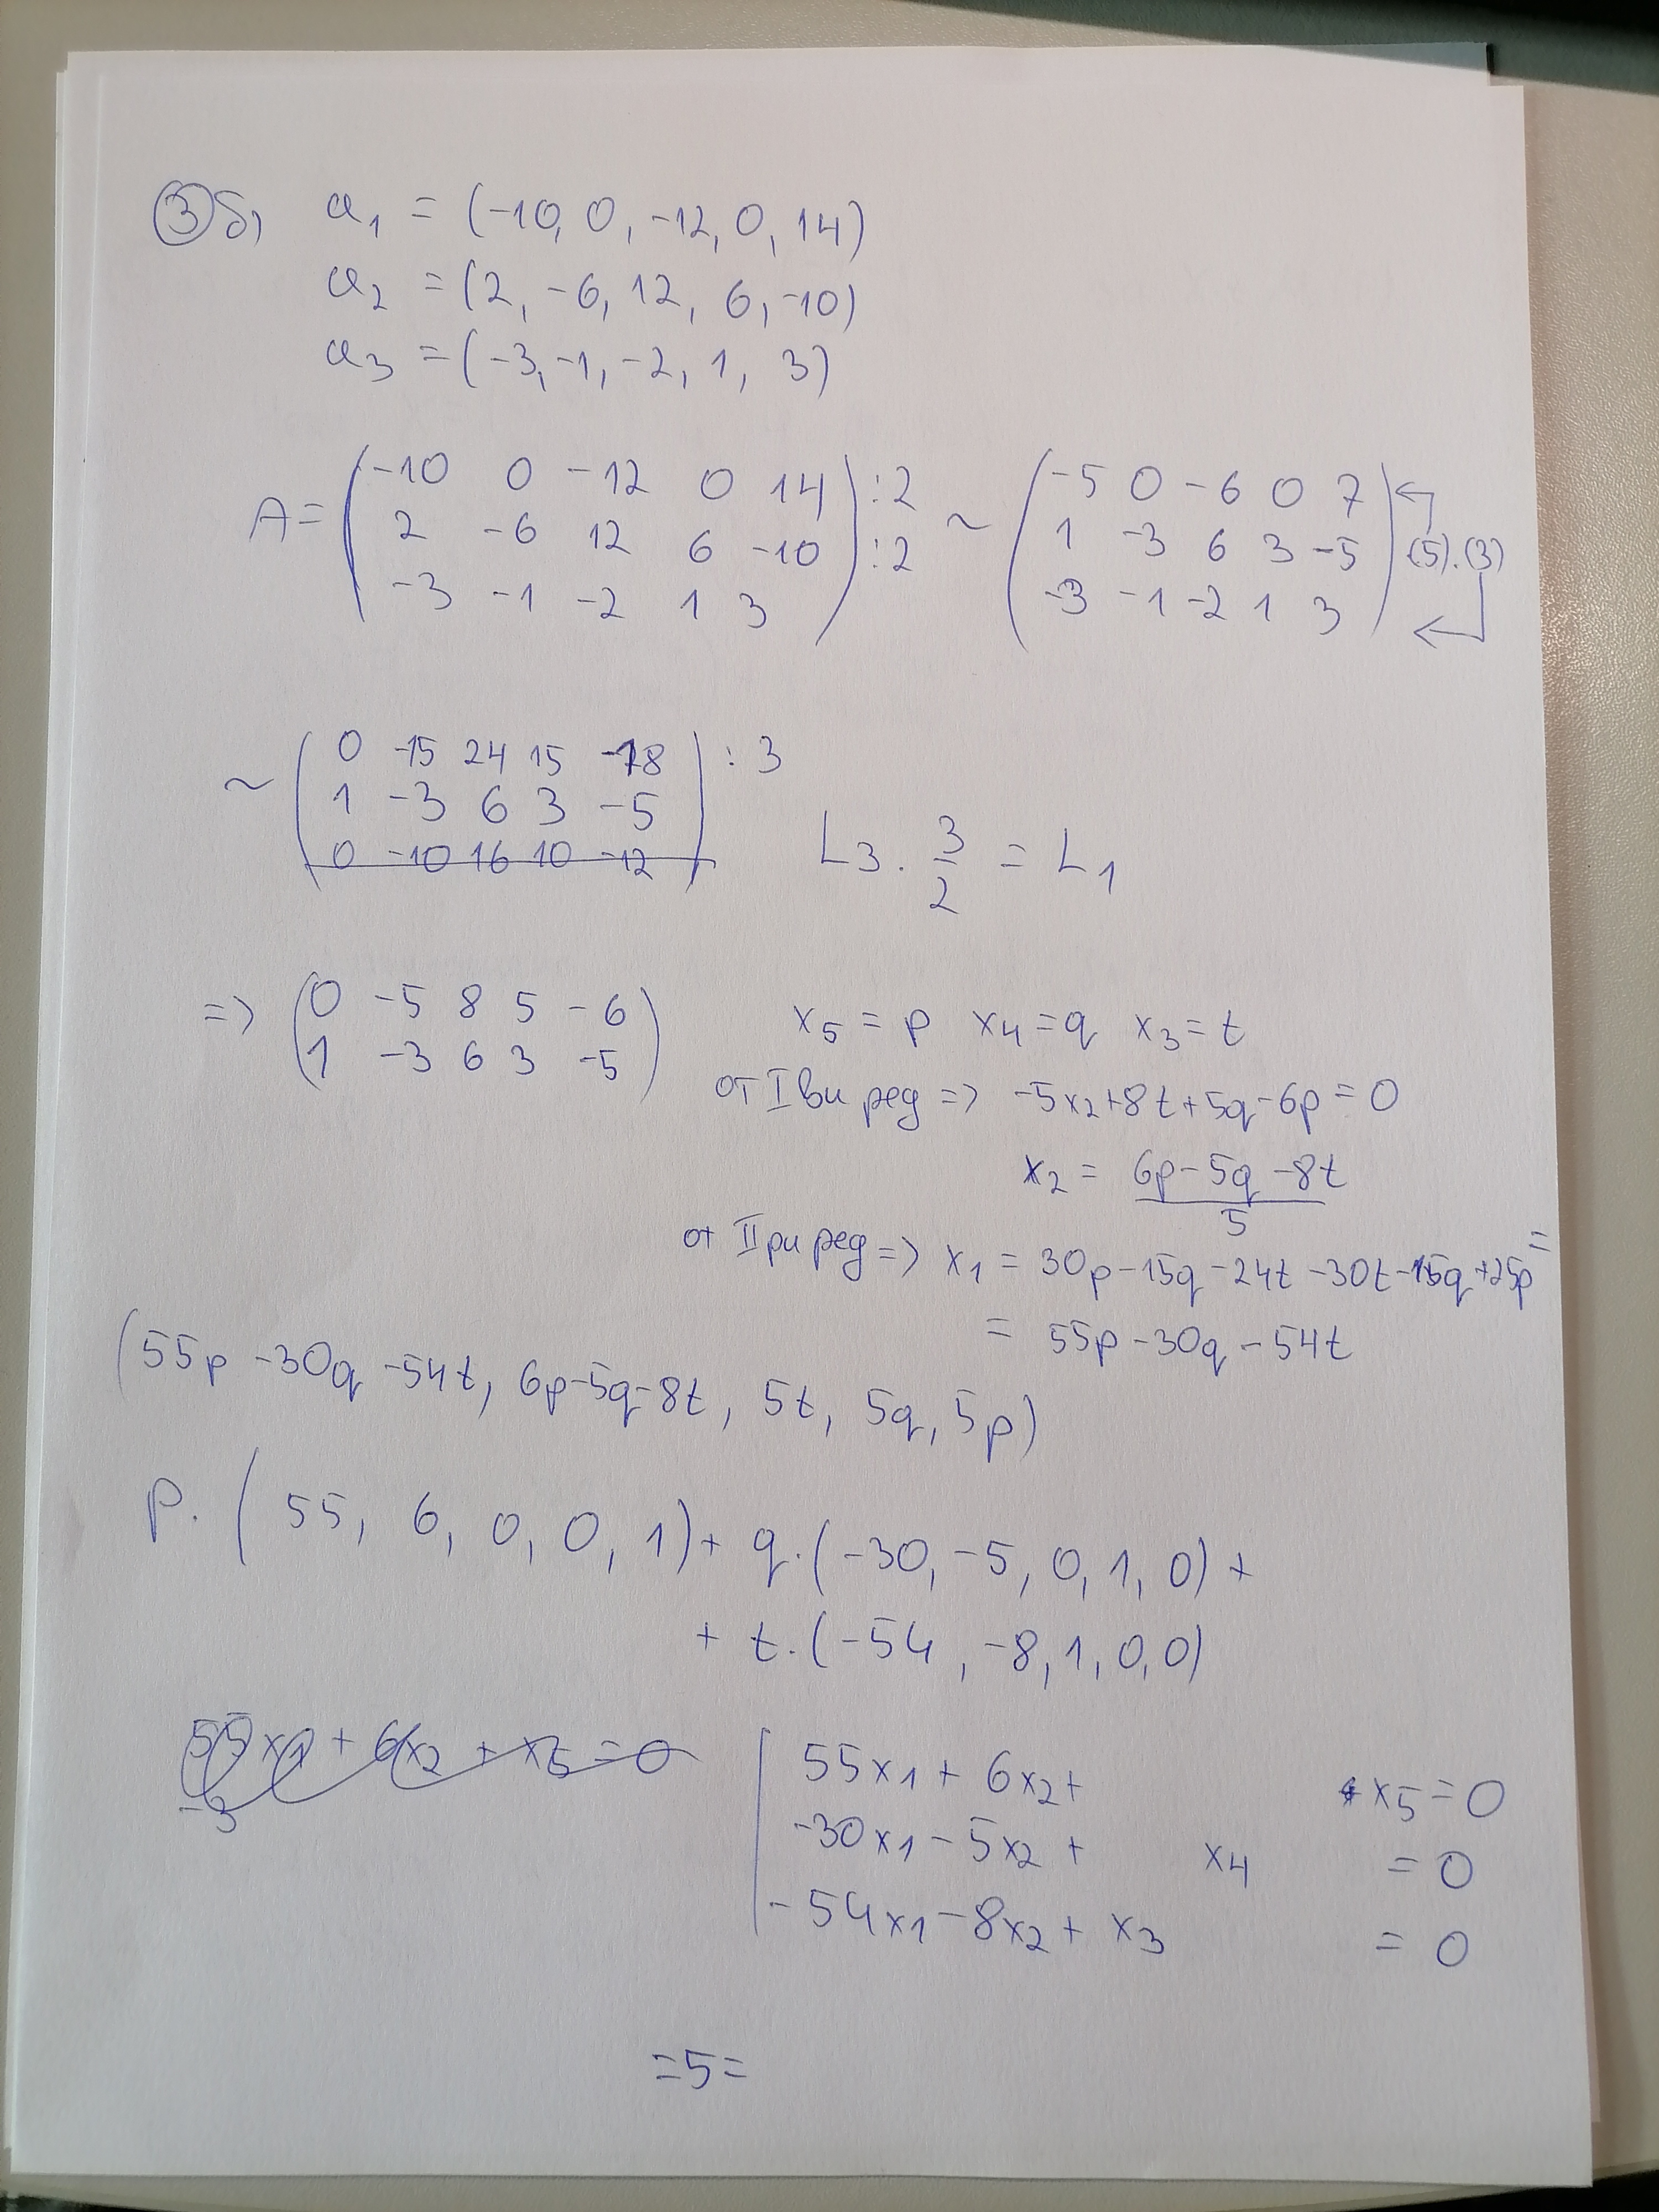 ③ б) a₁ = (-10, 0, -12, 0, 14)
a₂ = (2, -6, 12, 6, -10)
a₃ = (-3, -1, -2, 1, 3)
A = ( -10 0 -12 0 14 ) :2 ~ ( -5 0 -6 0 7 )
2 -6 12 6 -10 :2 1 -3 6 3 -5 (5).(3)
-3 -1 -2 1 3 -3 -1 -2 1 3
~ ( 0 -15 24 15 -18 ) : 3
1 -3 6 3 -5
0 -10 16 10 -12 L₃ . 3/2 = L₁
=> ( 0 -5 8 5 -6 ) x₅ = p x₄ = q x₃ = t
1 -3 6 3 -5
от I ви ред => -5x₂+8t+5q-6p = 0
x₂ = 6p-5q-8t / 5
от II ри ред => x₁ = 30p-15q-24t-30t-15q+25p =
= 55p-30q-54t
(55p-30q-54t, 6p-5q-8t, 5t, 5q, 5p)
p. (55, 6, 0, 0, 1) + q.(-30, -5, 0, 1, 0) +
+ t.(-54, -8, 1, 0, 0)
55x₁ + 6x₂ + x₅ = 0
-3
55x₁ + 6x₂+ + x₅ = 0
-30x₁ - 5x₂ + x₄ = 0
-54x₁ - 8x₂ + x₃ = 0
=5=